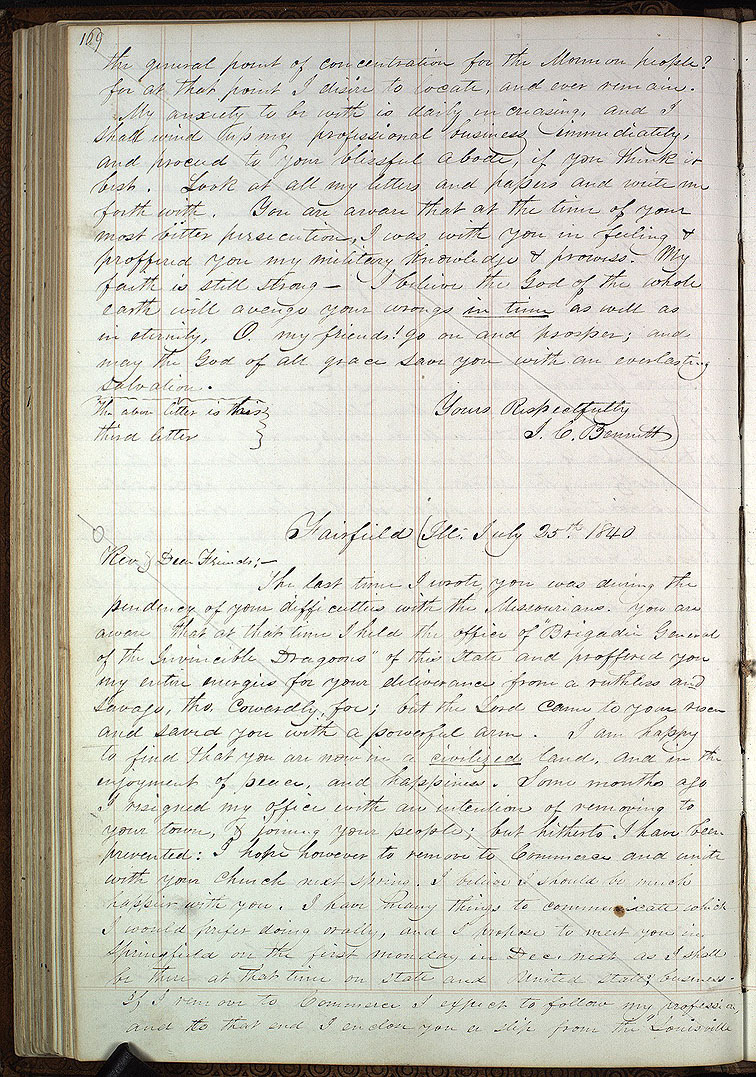 169
the general point of concentration for the Mormon people?
for at that point I desire to locate, and ever remain.
My anxiety to be with is daily increasing, and I
shall wind up my professional business immediately,
and proceed to your blissful abode, if you think it
best. Look at all my letters and papers and write me
forth with. You are aware that at the time of your
most bitter persecution, I was with you in feeling &
proffered you my military knowledge & prowess. My
faith is still strong— I believe the God of the whole
earth will avenge your wrongs in time as well as
in eternity, O. my friends! go on and prosper; and
may the God of all grace save you with an everlasting
salvation.
The above letter is this
third letter
Yours Respectfully
J. C. Bennett
Fairfield Ill. July 25th 1840
Rev. & Dear Friends;—
The last time I wrote you was during the
pendency of your difficulties with the Missourians. You are
aware that at that time I held the office of "Brigadier General
of the Invincible Dragoons" of this State and proffered you
my entire energies for your deliverance from a ruthless and
savage, tho. cowardly foe; but the Lord came to your rescue
and saved you with a powerful arm. I am happy
to find that you are now in a civilized land, and in the
enjoyment of peace, and happiness. Some months ago
I resigned my office with an intention of removing to
your town, & joining your people; but hitherto I have been
prevented: I hope however to remove to Commerce and unite
with your Church next spring. I believe I should be much
happier with you. I have many things to communicate which
I would prefer doing orally, and I propose to meet you in
Springfield on the first monday in Dec. next as I shall
be there at that time on state and United States business.
If I remove to Commerce I expect to follow my profession,
and to that end I enclose you a slip from the "Louisville